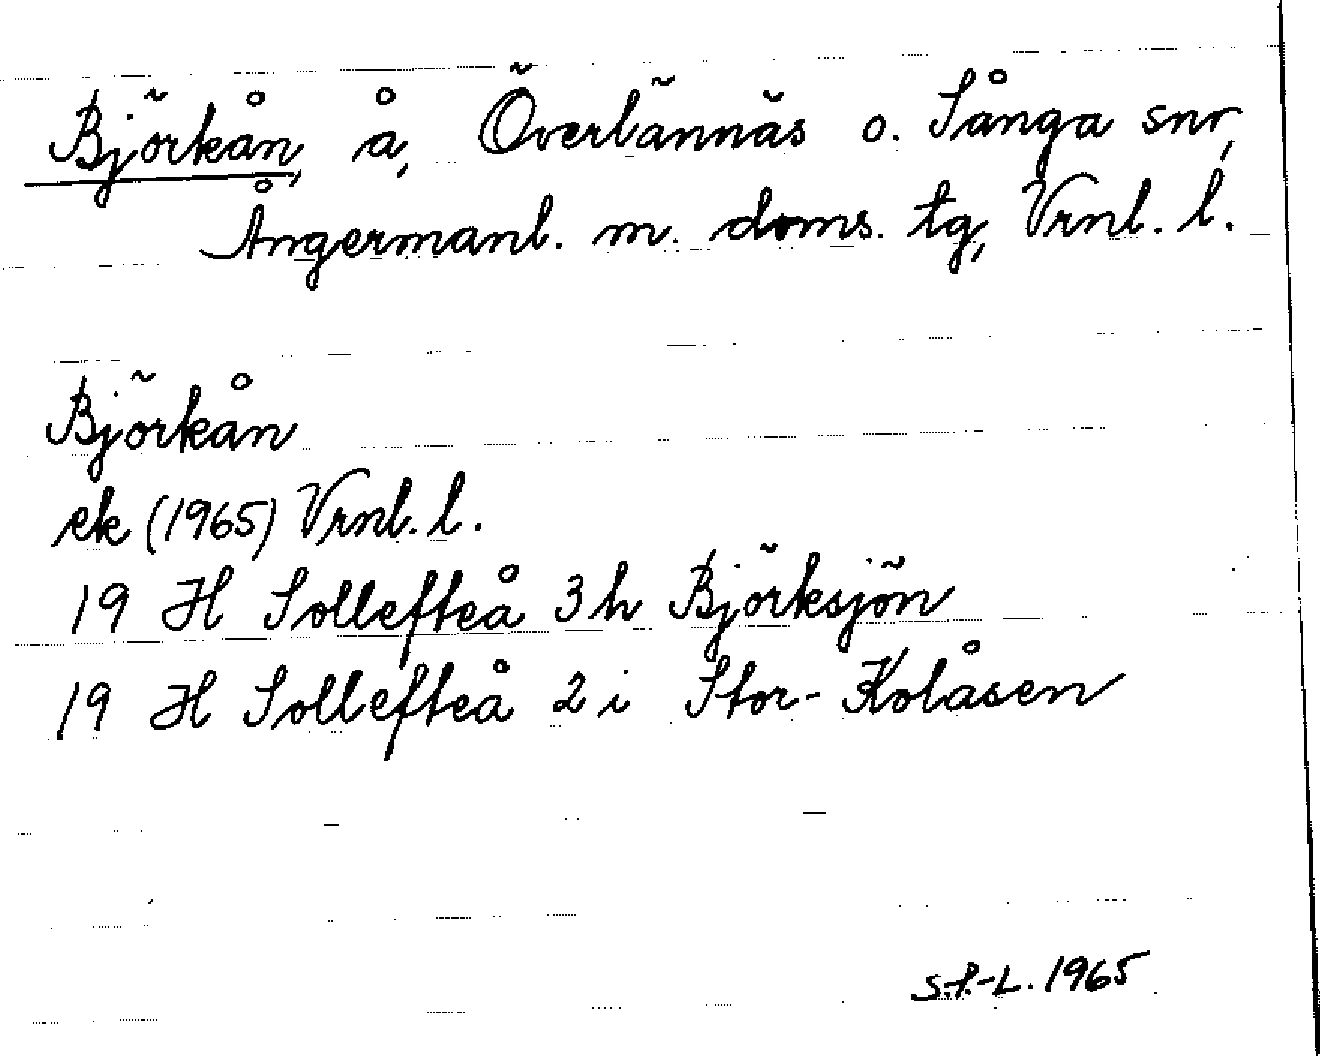 Björkån, å, Överlännäs o. Sånga snr,
Ångermanl. m. doms. tg, Vrnl. l.
Björkån
ek (1965) Vrnl. l.
19 H Sollefteå 3 h Björksjön
19 H Sollefteå 2 i Stor-Kolåsen
S.P.-L. 1965